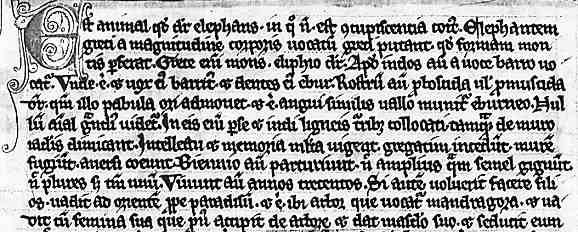 Est animal qd dr elephans in q n est 9cupiscentia coit. Elephantem
greci a magnitudine corporis uocatū greci putant qd formam mon
tis pferat. Grece eni mons eliphio dr. Apd indos aū a uoce barro uo
cat. Unde & uox ei barrit & dentes ei ebur. Rostrū aū pboscida ul pmuscida
dr qm illo pabula ori admouet & ē angui similis uallo munit eburneo. Nul
lū aīal gndi uidet. In eis eni pse & indi ligneis trib collocati tamq de muro
iaclis dimicant. Intellectu & memoria mlta uigent gregatim incedūt murē
fugiūt auersi coeunt. Biennio aū parturiunt n amplius qm semel gignūt
n plures s tm unū. Uiuunt aū annos trecentos. Si autē uoluerit facere fili
os uadit ad orientē ppe paradisū & ē ibi arbor que uocat mandragora & ua
dit cū femina sua que pri accipit de arbore & dat masclo suo & seducit eum